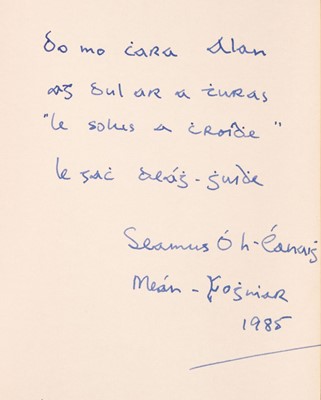 Do mo ċara Alan
ag dul ar a ṫuras
"le solus a ċroiḋe"
le gaċ deáġ-ġuiḋe
Seamus Ó h-Éanaiġ
Meán-Foġmar
1985